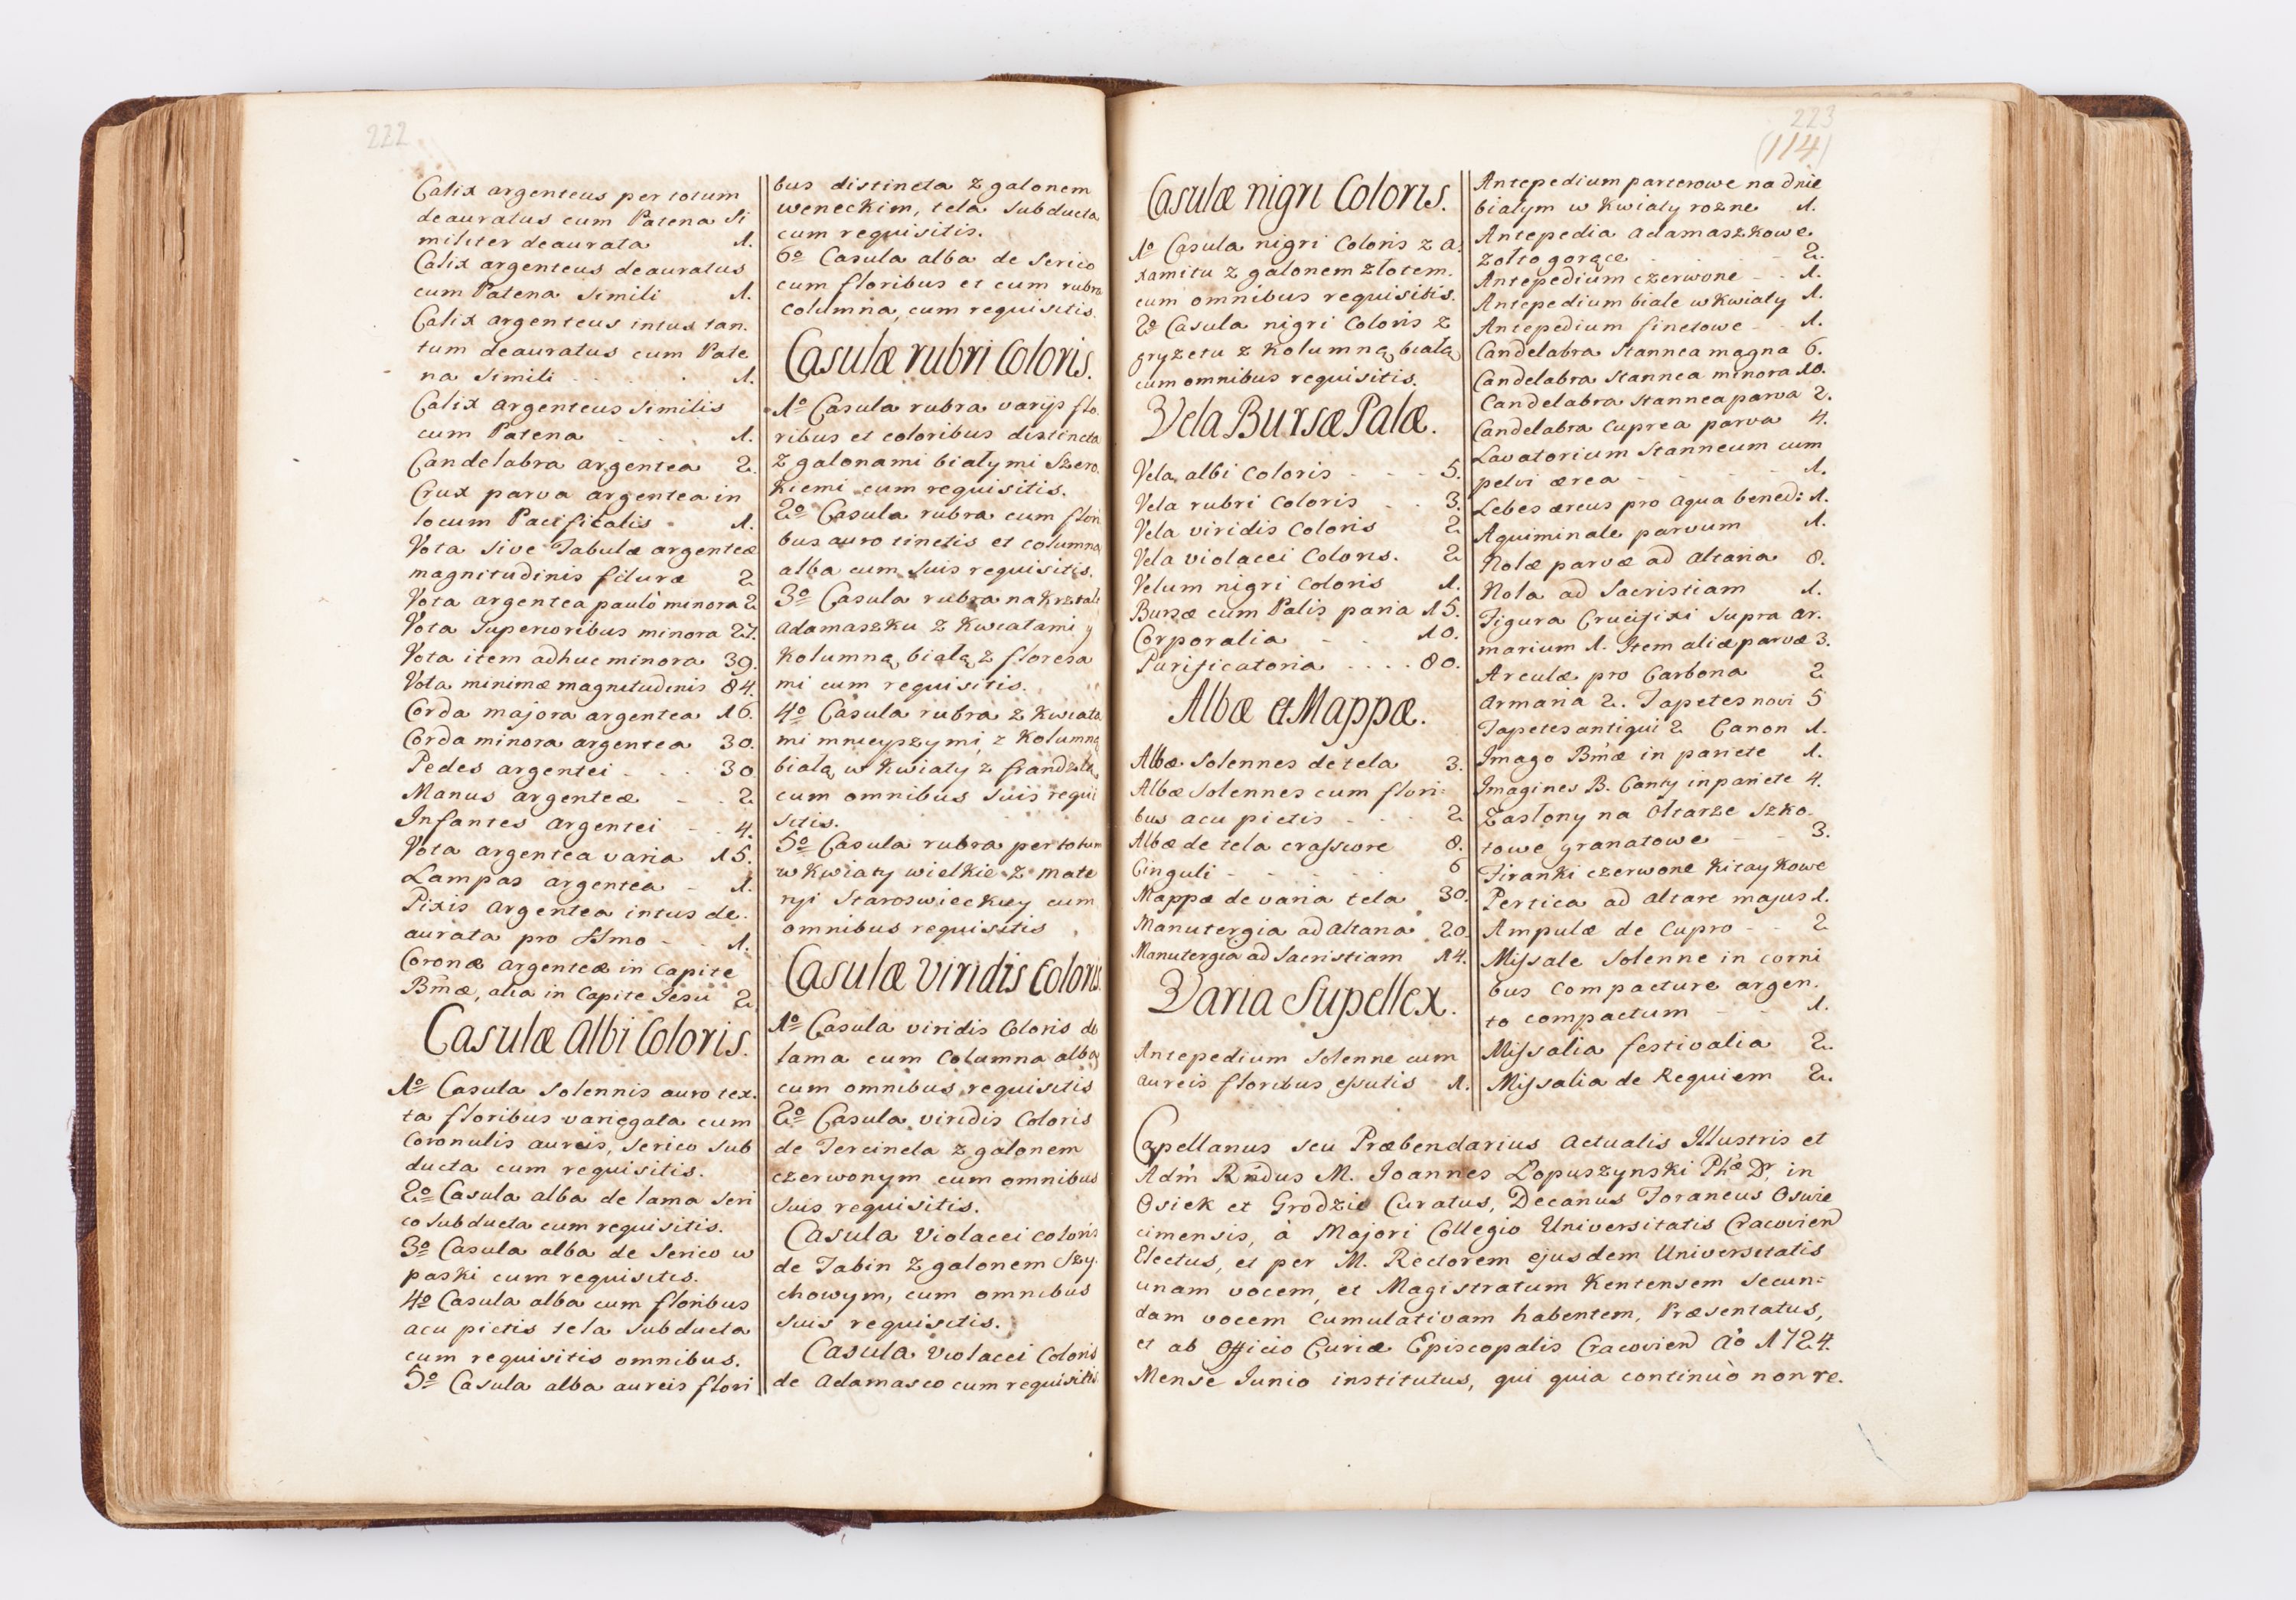 222
Calix argenteus per totum
deauratus cum Patena Si
militer deaurata 1.
Calix argenteus deauratus
cum Patena Simili 1.
Calix argenteus intus tan.
tum deauratus cum Pate
na Simili 1.
Calix argenteus Similis
cum Patena 1.
Candelabra argentea 2.
Crux parva argentea in
locum Pacificalis 1.
Vota Sive Tabulæ argenteæ
magnitudinis 2
Vota argentea paulò minora 2
Vota Superioribus minora 27.
Vota item adhuc minora 39.
Vota minimæ magnitudinis 84.
Corda majora argentea 16.
Corda minora argentea 30.
Pedes argentei 30
Manus argenteæ 2
Infantes argentei 4.
Vota argentea varia 15.
Lampas argentea 1.
Pixis argentea intus de.
aurata pro SSmo 1.
Coronæ argenteæ in Capite
Bmæ, alia in Capite Jesu 2
Casulæ Albi Coloris.
1º Casula Solennis auro tex.
ta floribus variegata cum
Coronulis aureis, Serico Sub
ducta cum requisitis.
2º Casula alba de lama Seri
co Subducta cum requisitis.
3º Casula alba de Serico w
paski cum requisitis.
4º Casula alba cum floribus
acu pictis tela Subducta
cum requisitis omnibus.
5º Casula alba aureis flori
bus distincta z galonem
weneckim, tela Subducta
cum requisitis.
6º Casula alba de Serico
cum floribus et cum rubra
Columna, cum requisitis.
Casulæ rubri Coloris.
1º Casula rubra varijs flo.
ribus et coloribus distincta
z galonami białymi Szero.
kiemi cum requisitis.
2º Casula rubra cum flori
bus auro tinctis et columna
alba cum Suis requisitis.
3º Casula rubra na
adamaszku z Kwiatami y
Kolumną białą z floresa
mi cum requisitis.
4º Casula rubra z Kwiata
mi mnieyszymi, z Kolumną
białą w Kwiaty z frandzlą,
cum omnibus Suis requi
sitis.
5º Casula rubra per totum
w Kwiaty wielkie z mate
ryi Staroswieckiey cum
omnibus requisitis
Casulæ viridis Coloris.
1º Casula viridis Coloris de
lama cum Columna alba,
cum omnibus requisitis
2º Casula viridis Coloris
de Tercinela z galonem
czerwonym cum omnibus
Suis requisitis.
Casula Violacei coloris
de Tabin z galonem Szy.
chowym, cum omnibus
Suis requisitis.
Casula Violacei Coloris
de Adamasco cum requisitis
223
(114)
Casulæ nigri Coloris.
1º Casula nigri Coloris z a.
xamitu z galonem złotem.
cum omnibus requisitis.
2º Casula nigri Coloris z
gryzetu z Kolumną białą
cum omnibus requisitis.
Vela Bursæ Palæ.
Vela albi Coloris 5.
Vela rubri Coloris 3.
Vela viridis Coloris 2
Vela violacei Coloris. 2
Velum nigri Coloris 1.
Bursæ cum Palis paria 15.
Corporalia 10.
Purificatoria 80.
Albæ et Mappæ.
Albæ Solennes de tela 3.
Albæ Solennes cum flori:
bus acu pictis 2
Albæ de tela crassiore 8.
Cinguli 6
Mappæ de varia tela 30.
Manutergia ad Altaria 20.
Manutergia ad Sacristiam 14.
Varia Supellex.
Antepedium Solenne cum
aureis floribus 1.
Antepedium parterowe na dnie
białym w Kwiaty rozne 1.
Antepedia adamaszkowe
zołto gorące 2.
Antepedium czerwone 1.
Antepedium białe w Kwiaty 1.
Antepedium finetowe 1.
Candelabra Stannea magna 6.
Candelabra Stannea minora 10.
Candelabra Stannea parva 2.
Candelabra Cuprea parva 4.
Lavatorium Stanneum cum
pelvi ærea 1.
Lebes æreus pro aqua bened: 1.
Aquiminale parvum 1.
Nolæ parvæ ad Altaria 8.
Nola ad Sacristiam 1.
Figura Crucifixi Supra ar.
marium 1. Item aliæ parvæ 3.
Arculæ pro Carbona 2
Armaria 2. Tapetes novi 5
Tapetes antiqui 2 Canon 1.
Imago Bmæ in pariete 1.
Imagines B. Canty in pariete 4.
Zasłony na Ołtarze Szko.
towe granatowe 3.
Firanki czerwone Kitaykowe
Pertica ad altare majus 1.
Ampulæ de Cupro 2
Missale Solenne in corni
bus compacture argen.
to compactum 1.
Missalia festivalia 2.
Missalia de Requiem 2.
Capellanus seu Præbendarius Actualis Illustris et
Adm Rndus M. Joannes Łopuszynski Phæ Dr, in
Osiek et Grodzie Curatus, Decanus Foraneus Oswie
cimensis, à Majori Collegio Universitatis Cracovien
Electus, et per M. Rectorem ejusdem Universitatis
unam vocem, et Magistratum Kentensem Secun:
dam vocem Cumulativam habentem, Præsentatus,
et ab Officio Curiæ Episcopalis Cracovien Aº 1724.
Mense Junio institutus, qui quia continuò non re.